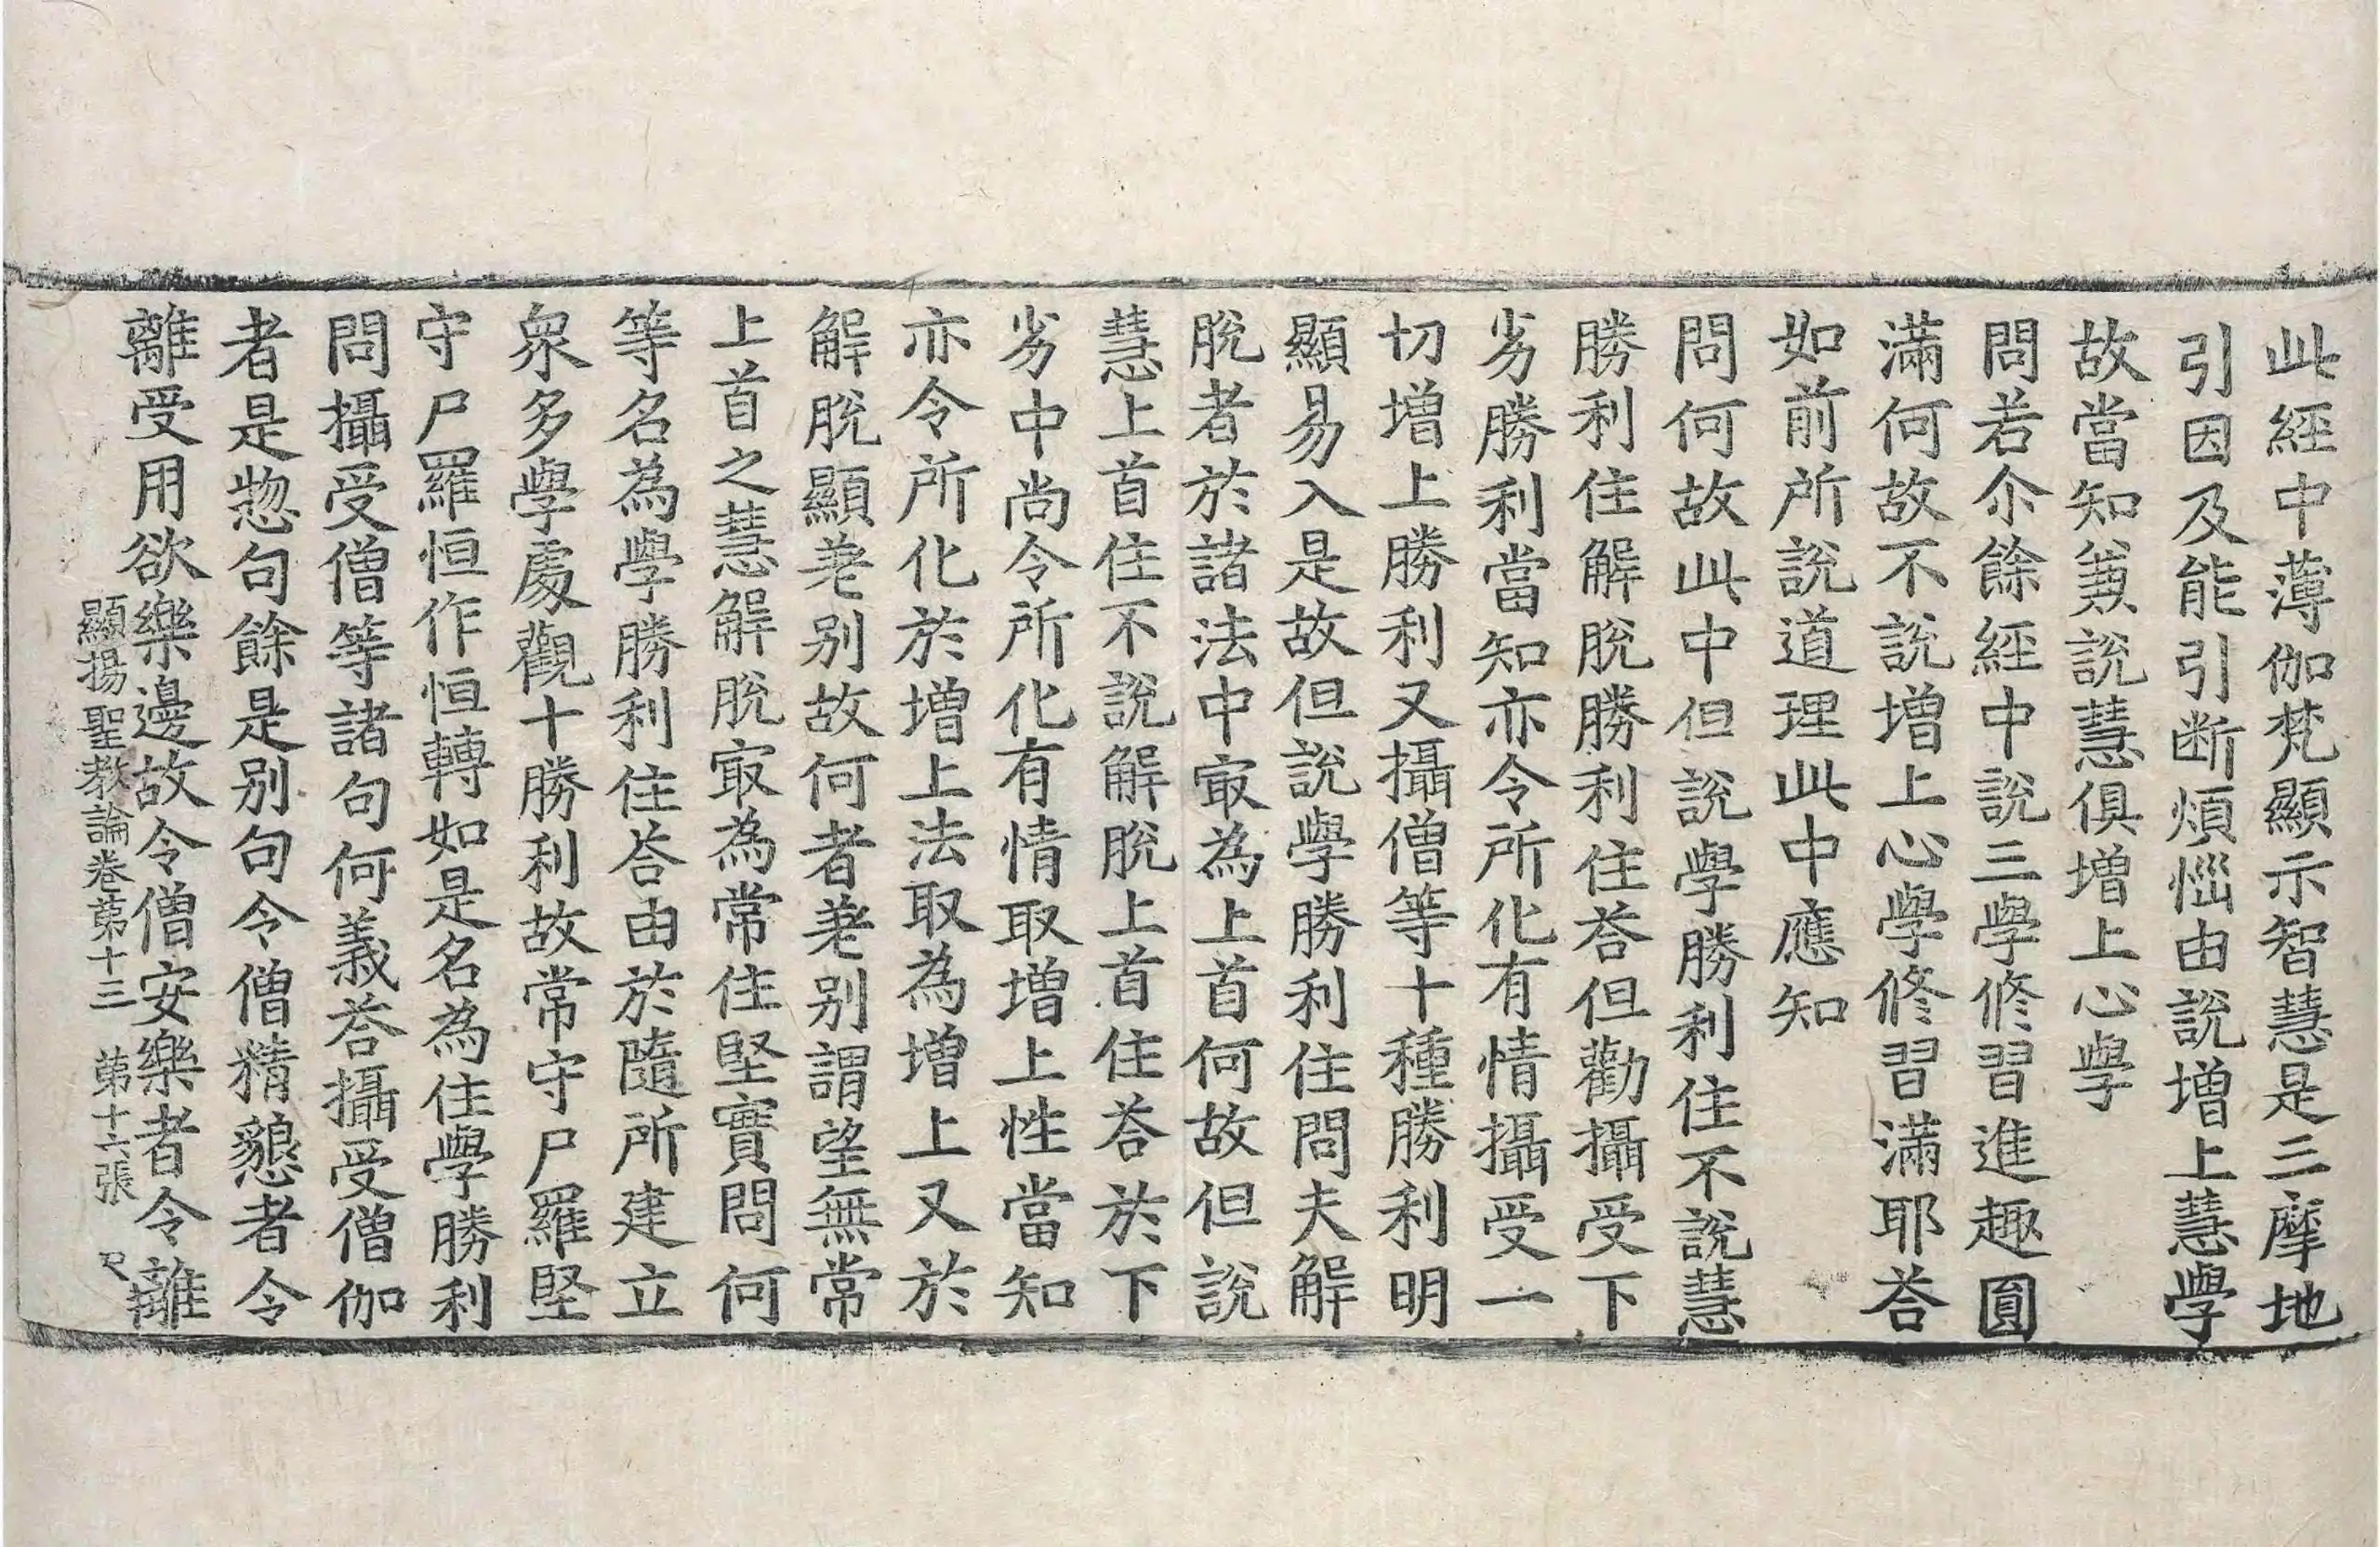 此經中薄伽梵顯示智慧是三摩地
引因及能引断煩惱由說增上慧學
故當知兼說慧俱增上心學
問若尒餘經中說三學修習進趣圓
滿何故不說增上心學修習滿耶荅
如前所說道理此中應知
問何故此中但說學勝利住不說慧
勝利住解脫勝利住荅但勸攝受下
劣勝利當知亦令所化有情攝受一
切增上勝利又攝僧等十種勝利明
顯易入是故但說學勝利住問夫解
脫者於諸法中㝡為上首何故但說
慧上首住不說解脫上首住荅於下
劣中尚令所化有情取增上性當知
亦令所化於增上法取為增上又於
解脫顯差别故何者差别謂望無常
上首之慧解脫㝡為常住堅實問何
等名為學勝利住荅由於隨所建立
衆多學處觀十勝利故常守尸羅堅
守尸羅恒作恒轉如是名為住學勝利
問攝受僧等諸句何義荅攝受僧伽
者是惣句餘是别句令僧精懇者令
離受用欲樂邊故令僧安樂者令離
顯揚聖教論卷第十三 第十六張